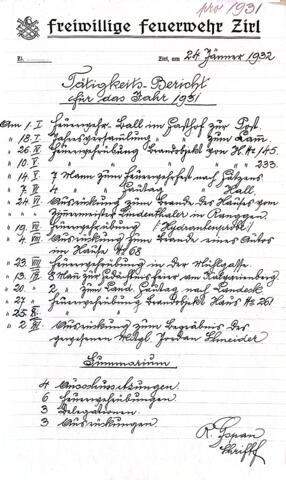 pro 1931
freiwillige feuerwehr Zirl
Zl.
Zirl, am 24. Jänner 1932
Tätigkeits-Bericht
für das Jahr 1931
Am 1. I. Feuerwehr-Ball im Gasthof zur Post.
" 18. I. Jahresversammlung " " zum Lam
" 26. IV. Feuerwehrübung Brandobjekt von H. No 145.
" 10. V. " " " " 233.
" 14. V. 7 Mann zum Feuerwehrfest nach
" 7. 4 " " " Hall.
" 24. Ausrückung zum Brande des Hauses von
Lindenthaler in Ranggen
" 19. Feuerwehrübung (Hydrantenprobe)
" 4. Ausrückung zum Brande eines Autos
im Hause No 68
" 23. VIII. Feuerwehrübung in der Mühlgasse.
" 13. 8 Mann zur
" 20. " 2 " zum Land. nach Landeck
" 27. " Feuerwehrübung Brandobjekt Haus No 261
" 25.
" 2. Ausrückung zum Begräbnis des
gewesenen Mitgl. Jordan Schneider
Summarium
4 Ausschussitzungen.
6 Feuerwehrübungen.
3 Delegationen.
3 Ausrückungen.
R. Gspan
Schriftf.